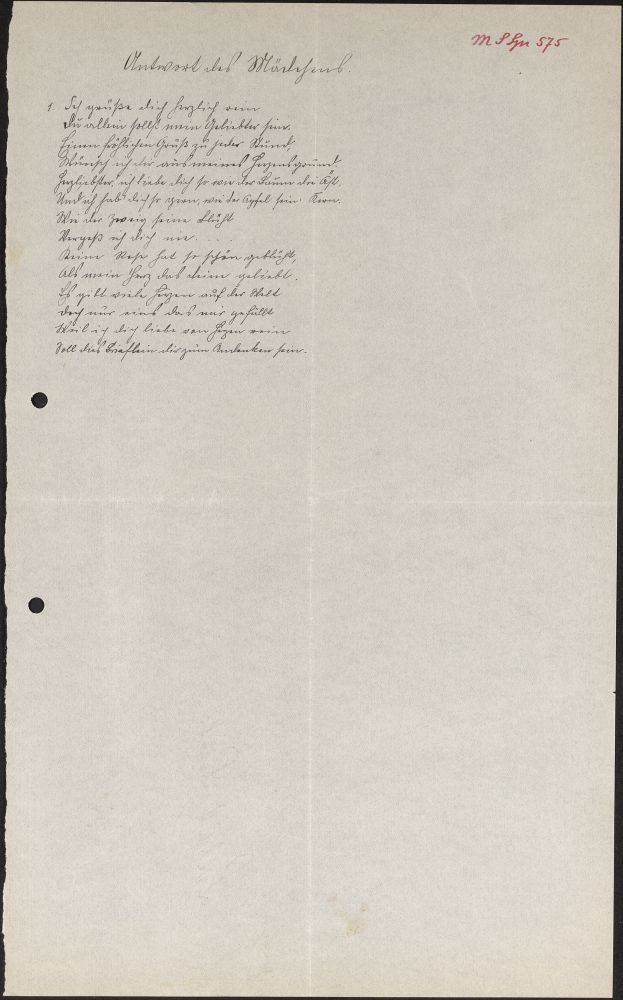 M S Gu 575
Antwort des Mädchens.
1. Ich grüße dich herzlich rein
Du allein sollst mein Geliebter sein.
Einen fröhlichen Gruß zu jeder Stund,
Wünsch ich dir aus meines Herzensgrund.
Herzliebster, ich liebe dich so wie der Baum die Äst.
Und ich hab dich so gern, wie der Apfel sein Kern.
Wie der Zweig seine Blüht
Vergeß ich dich nie. . . .
Keine Rose hat so schön geblüht,
Als mein Herz das deine geliebt.
Es gibt viele Herzen auf der Welt
Doch nur eins das mir gefällt
Weil ich dich liebe von Herzen rein
Soll dies Brieflein dir zum Andenken sein.